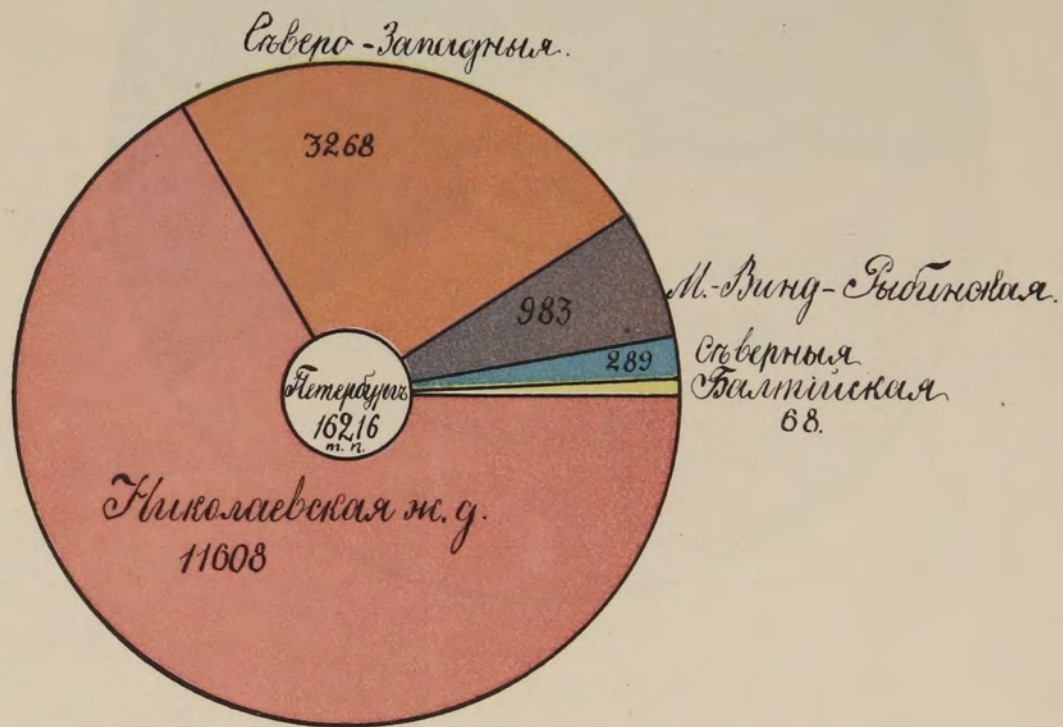 Сѣверо-Западныя.
3268
М.-Винд-Рыбинская.
983
Сѣверныя
289
Балтійская
68.
Петербургъ
16216
т. п.
Николаевская ж. д.
11608